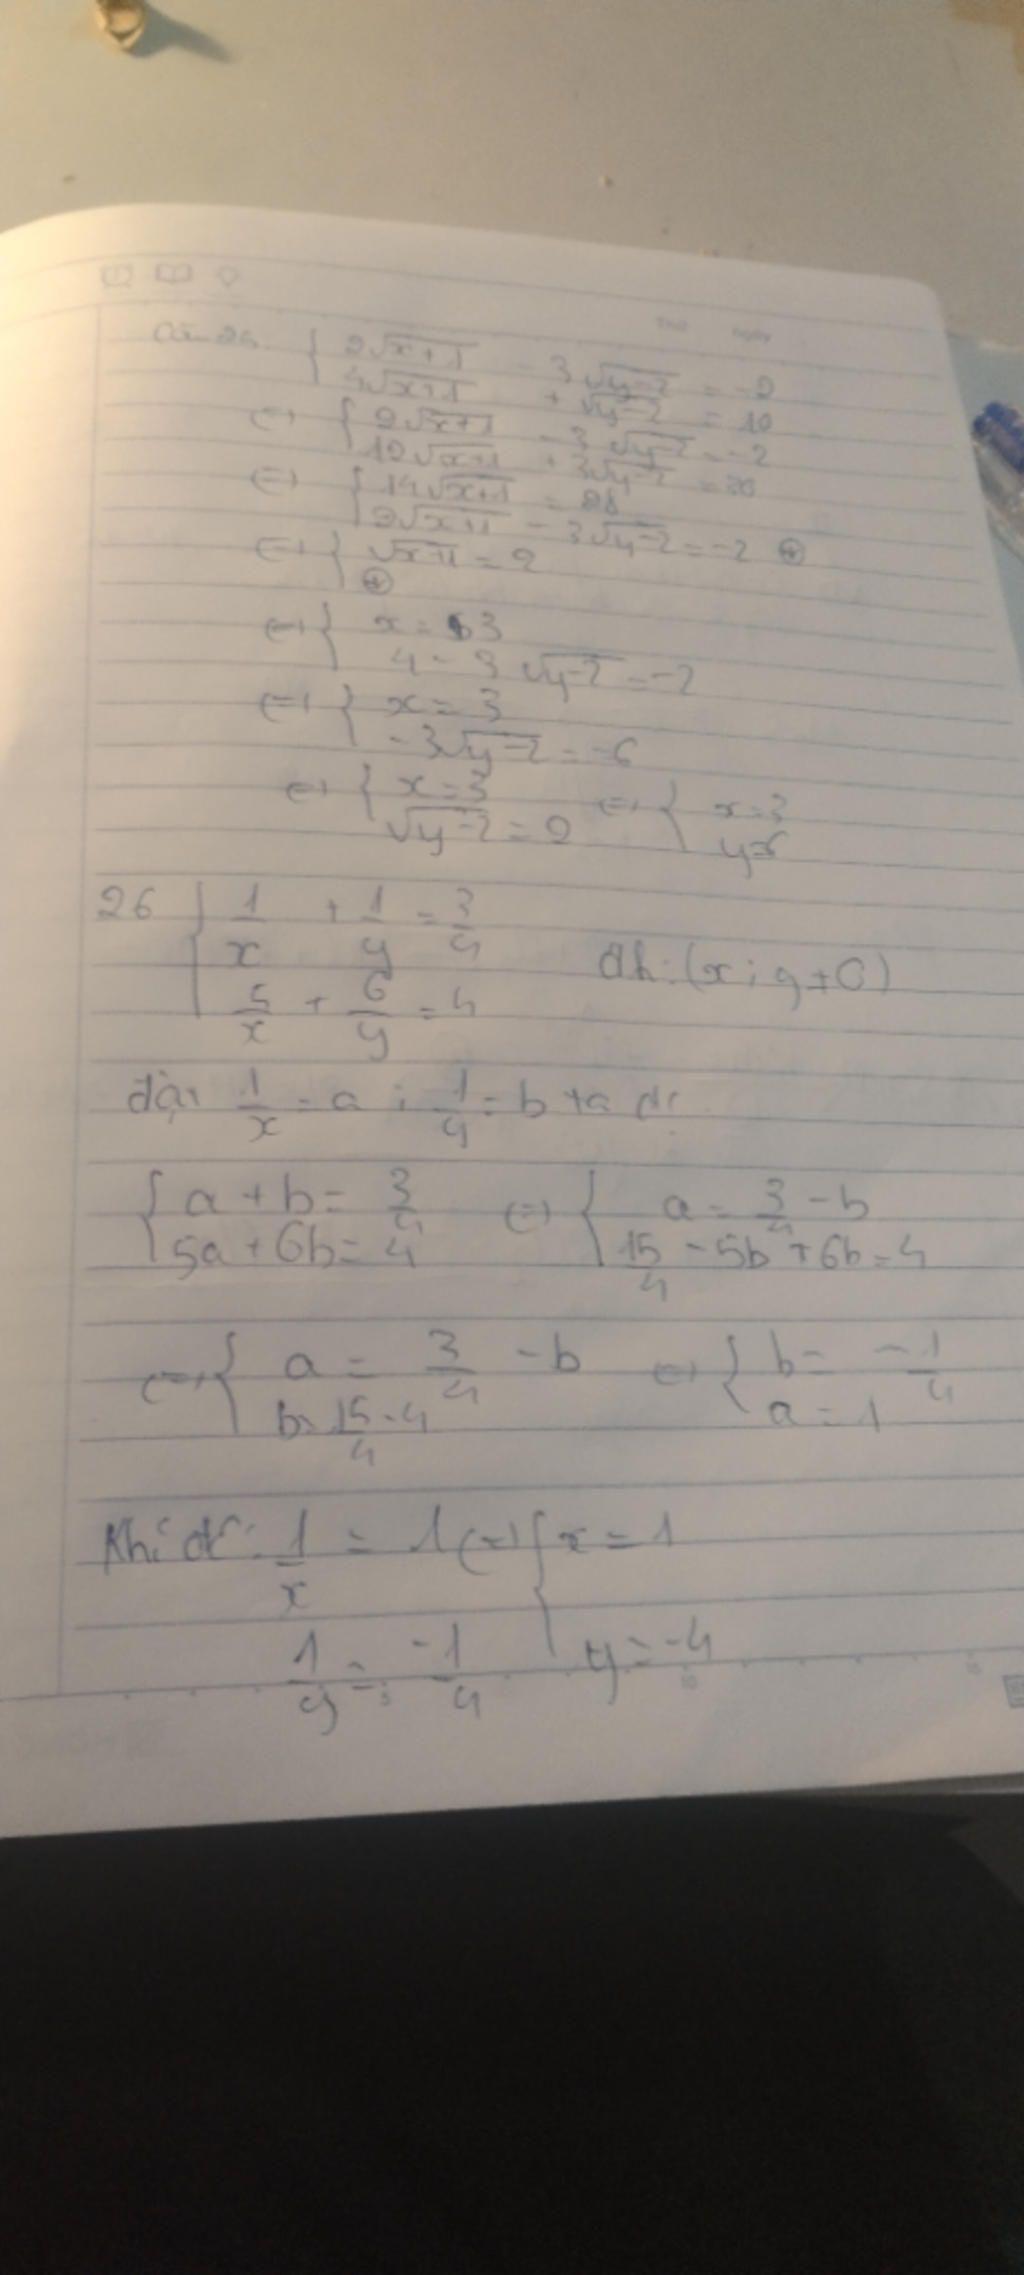 { 2√x+1 - 3√y-2 = -2
4√x+1 + √y-2 = 10
<=> { 2√x+1 - 3√y-2 = -2
12√x+1 + 3√y-2 = 30
<=> { 14√x+1 = 28
2√x+1 - 3√y-2 = -2 ⊕
<=> { √x+1 = 2
⊕
<=> { x = 3
4 - 3√y-2 = -2
<=> { x = 3
-3√y-2 = -6
<=> { x = 3 <=> { x = 3
√y-2 = 2 y=6
26 { 1/x + 1/y = 3/4
5/x + 6/y = 4 đk: (x; y ≠ 0)
đặt 1/x = a ; 1/y = b ta đc
{ a + b = 3/4 <=> { a = 3/4 - b
5a + 6b = 4 15/4 - 5b + 6b = 4
<=> { a = 3/4 - b <=> { b = -1/4
b = 15/4 - 4 a = 1
Khi đc: 1/x = 1 <=> { x = 1
1/y = -1/4 y = -4